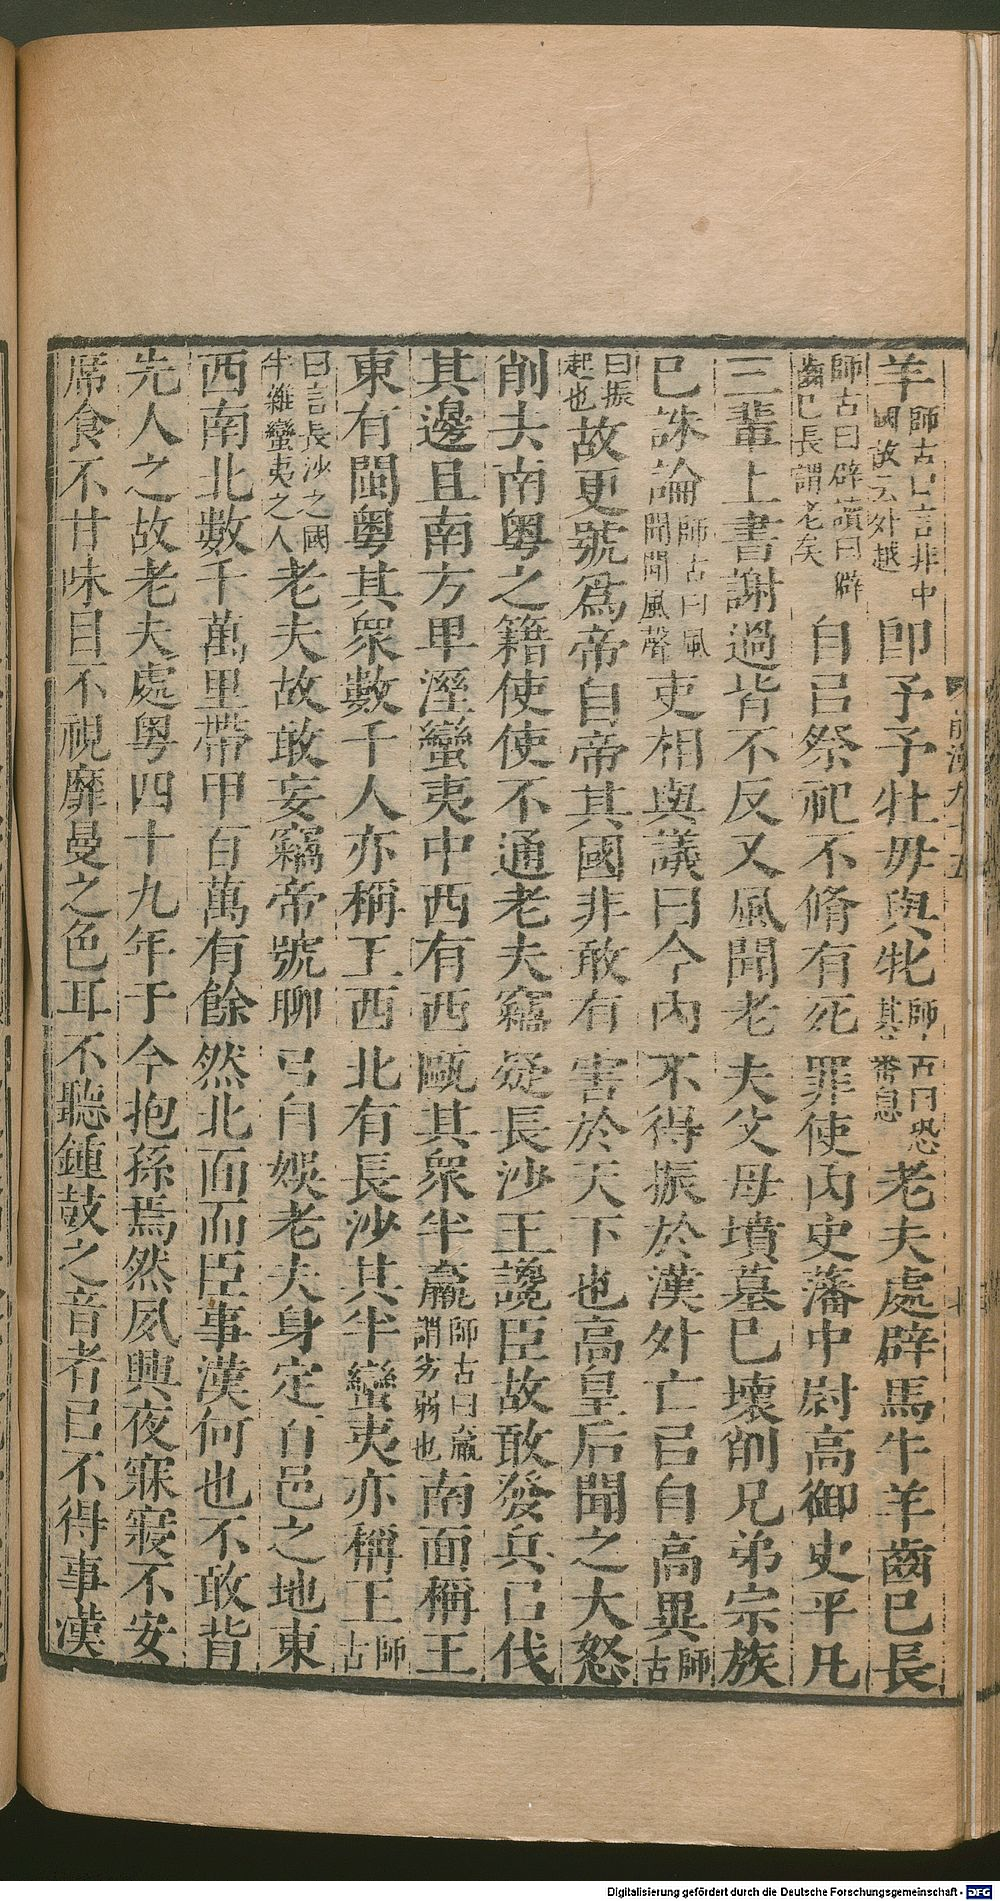 羊師古曰言非中國故云外越即予予牡毋與牝師古曰恐其蕃息老夫處辟馬牛羊齒已長
師古曰辟讀曰僻齒已長謂老矣自㠯祭祀不脩有死罪使內史藩中尉高御史平凡
三輩上書謝過皆不反又風聞老夫父母墳墓已壞削兄弟宗族
已誅論師古曰風聞聞風聲吏相與議曰今內不得振於漢外亡㠯自高異師古
曰振起也故更號爲帝自帝其國非敢有害於天下也高皇后聞之大怒
削去南粤之籍使使不通老夫竊疑長沙王讒臣故敢發兵㠯伐
其邊且南方卑溼蠻夷中西有西甌其衆半羸師古曰羸謂劣弱也南面稱王
東有閩粤其衆數千人亦稱王西北有長沙其半蠻夷亦稱王師古
曰言長沙之國半雜蠻夷之人老夫故敢妄竊帝號聊㠯自娛老夫身定百邑之地東
西南北數千萬里帶甲百萬有餘然北面而臣事漢何也不敢背
先人之故老夫處粤四十九年于今抱孫焉然夙興夜寐寢不安
席食不甘味目不視靡曼之色耳不聽鍾鼓之音者㠯不得事漢
前漢九十五
Digitalisierung gefördert durch die Deutsche Forschungsgemeinschaft - DFG